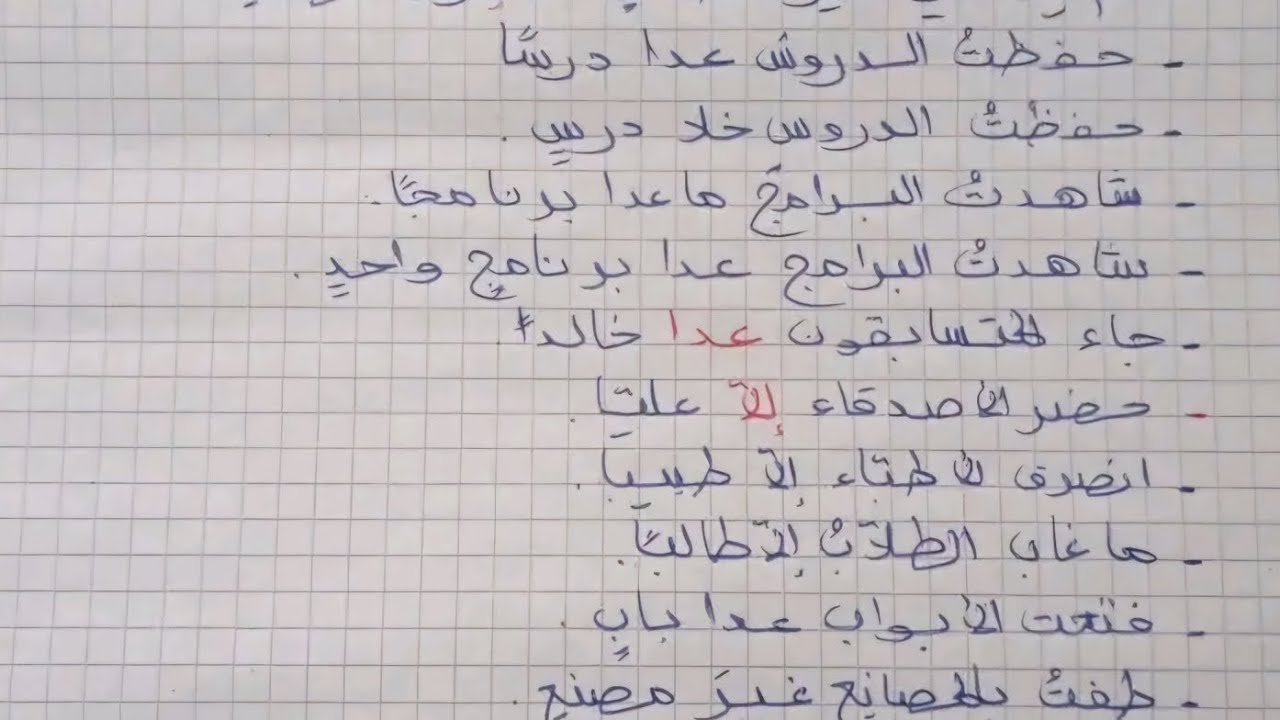 - حفظت الدروس عدا درسًا
- حفظتُ الدروس خلا درسٍ.
- شاهدتُ البرامجَ ما عدا برنامجًا.
- شاهدتُ البرامج عدا برنامجٍ واحدٍ.
- جاء المتسابقون عدا خالد
- حضر الأصدقاء إلّا عليًّا.
- انصرف الأطبّاء إلّا طبيبًا.
- ما غاب الطلّابُ إلّا طالبًا.
- فتحت الأبواب عدا بابٍ.
- طفتُ بالمصانع غيرَ مصنعٍ.